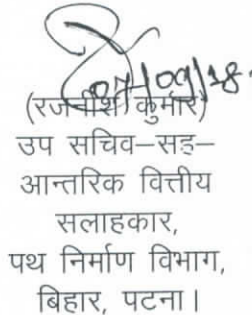 07/09/18.
(रजनीश कुमार)
उप सचिव–सह–
आन्तरिक वित्तीय
सलाहकार,
पथ निर्माण विभाग,
बिहार, पटना।